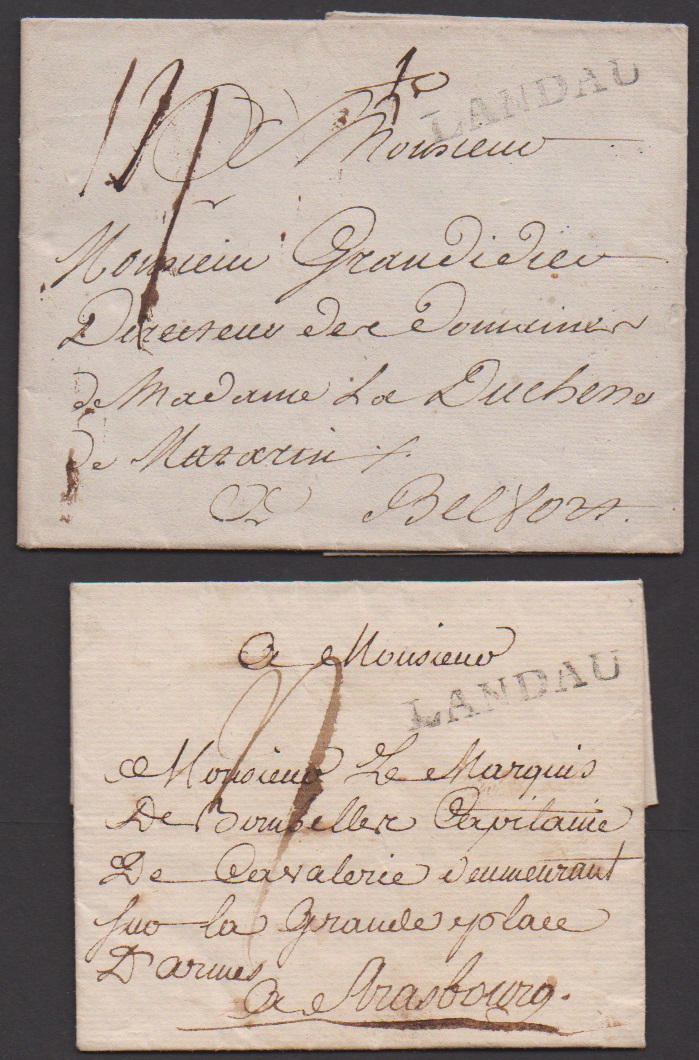 LANDAU
A Monsieur
Monsieur Grandidier
Directeur des Domaines
de Madame La Duchesse
de Mazarin
A Belfort.
A Monsieur
LANDAU
A Monsieur Le Marquis
De Bombelles Capitaine
De Cavalerie demeurant
sur la Grande place
D'armes
A Strasbourg.